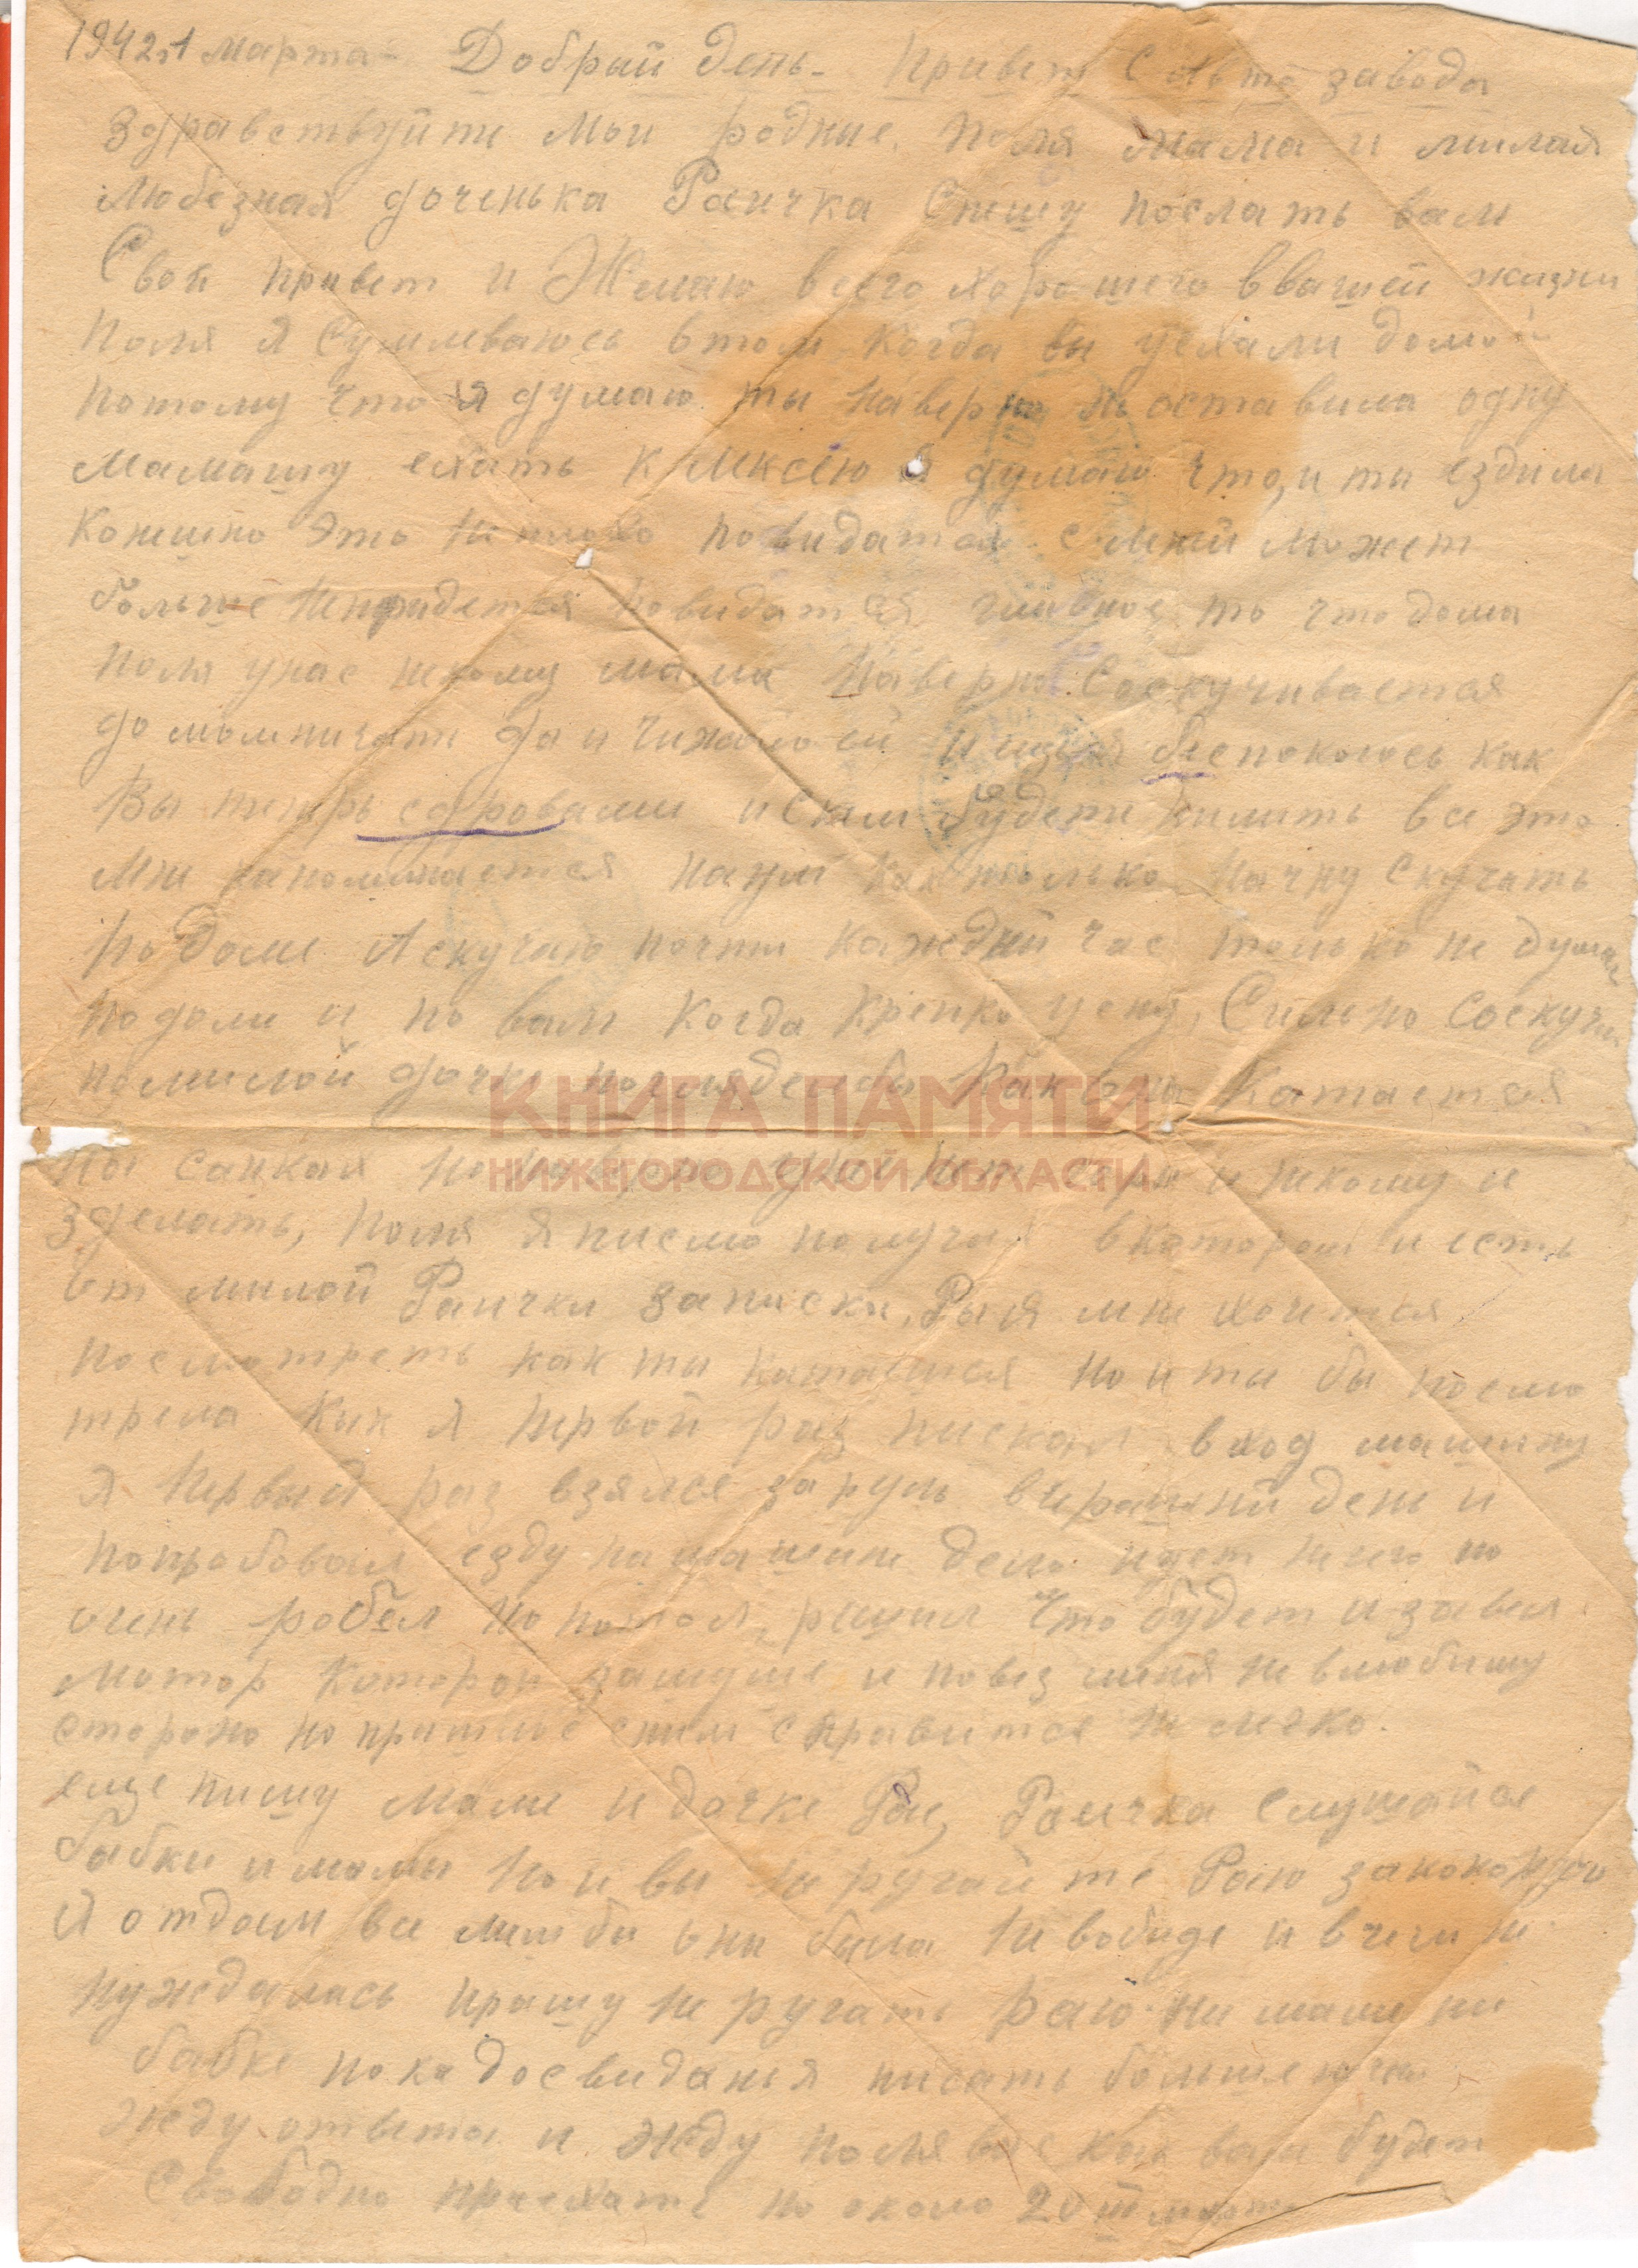 1942г 1 марта- Добрый день- Привет с Авто завода
Здравствуйти Мои родные. Поля мама и милая
Любезная доченька Раичка Спешу послать вам
Свой привет и Желаю всего хорошего в вашей жизни
Поля я Сумлеваюсь втом когда вы уехали домой
потому что я думаю ты наверно не оставила одну
Мамашу ехать к Лексею я думаю что, и ты ездила
Конешно это неплохо повидатся с ним Может
больше непридется повидатся главное то что дома
поля унас некому мама наверно Соскучивается
да и чижало ей и ищ я беспокоюсь как
Вы типерь сдровами и Скем будети пилить все это
Мне напоминается как только начну Скучать
по доме А скучаю почти каждый час только не думаю
подоми и по вам Когда крепко усну, Сильно Соскучил
помилой дочке погледел бы как она Катается
на санках но унас нет и некому и
зделать, Поля я писмо получил в котором и есть
от милой Раички записки, Рая мне хочется
посмотреть как ты катаешся но и ты бы посмо
трела Как я первой раз пискал в ход машину
я первый раз взялся за руль вчерашний день и
попробовал езду на машине дело идет ничего но
очень робел но потом, решил что будет и завел
мотор которой зашумел и повез меня не влюбишу
сторону но пришлос сним справится не легко.
еще пишу маме и дочке Рае, Раичка слушайся
бабки и мамы но и вы не ругайте Раю
Я отдам все лиш бы она была не вобиде и вчем не
нуждалась прашу не ругать Раю. ни маме ни
бабке пока досвиданья писать больше
жду ответа и жду поля вас как вам будет
Свободно приехать но около 20го марта
КНИГА ПАМЯТИ
НИЖЕГОРОДСКОЙ ОБЛАСТИ